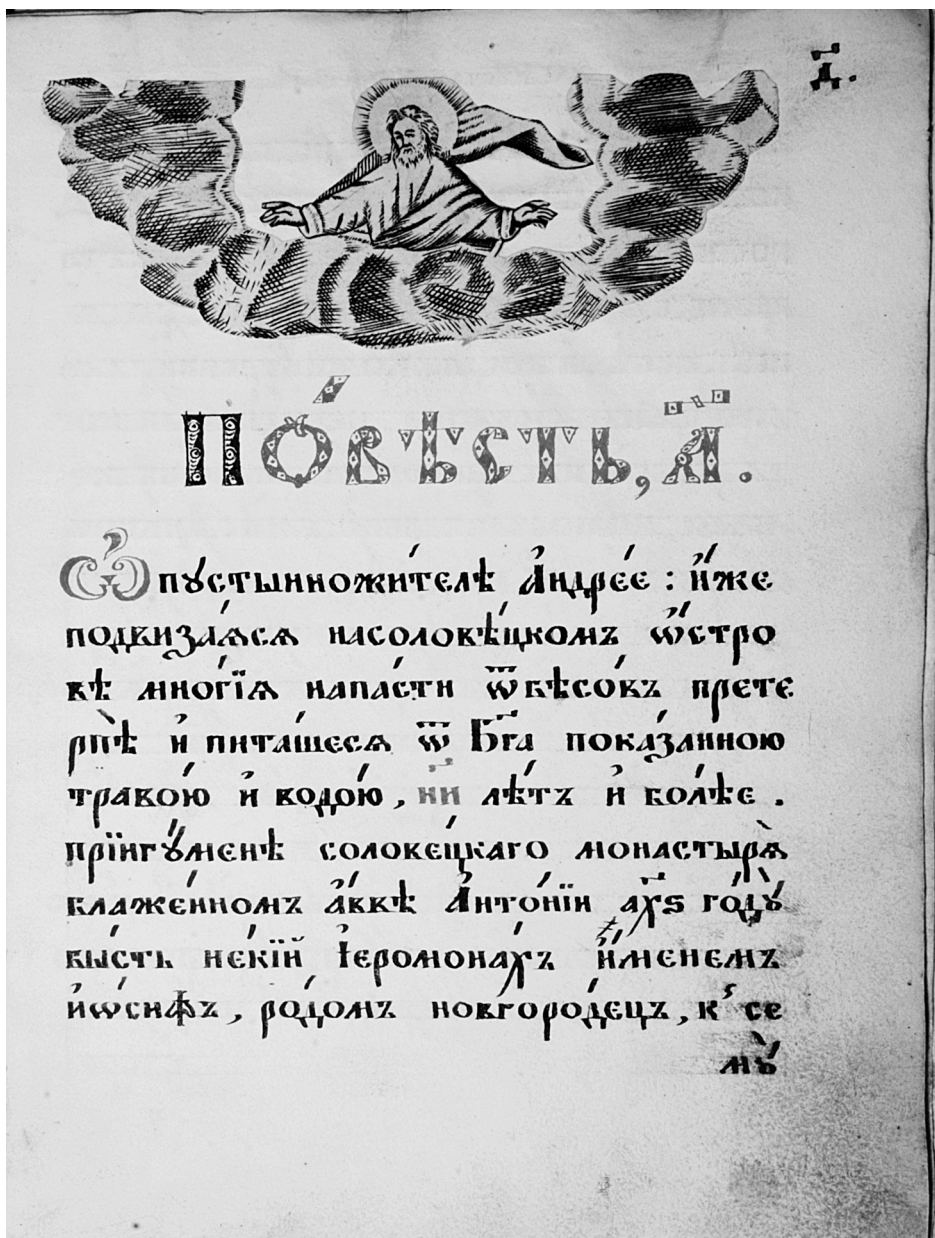 д҃.
По́вѣсть, а҃.
Ѡ҆ пꙋстынножи́телѣ А҆ндре́е : и҆́же
подвиза́ѧсѧ насоловѣ́цком̾ ѡ҆́стро
вѣ мно́гїѧ напа́сти ѿ бѣсо́въ прете
рпѣ̀ и҆ пита́шесѧ ѿ Бг҃а пока́занною
траво́ю и҆ водо́ю, н҃и лѣ́тъ и҆ бо́лѣе .
прїигꙋ́менѣ солове́цкаго монастырѧ̀
блаже́нномъ а҆́ввѣ А҆нто́нїи ах҃ѕ го́дꙋ̀
бы́сть не́кїй і҆еромона́хъ и҆́менемъ
и҆ѡ́сифъ, ро́домъ новгоро́децъ, к̾ се
мꙋ̀